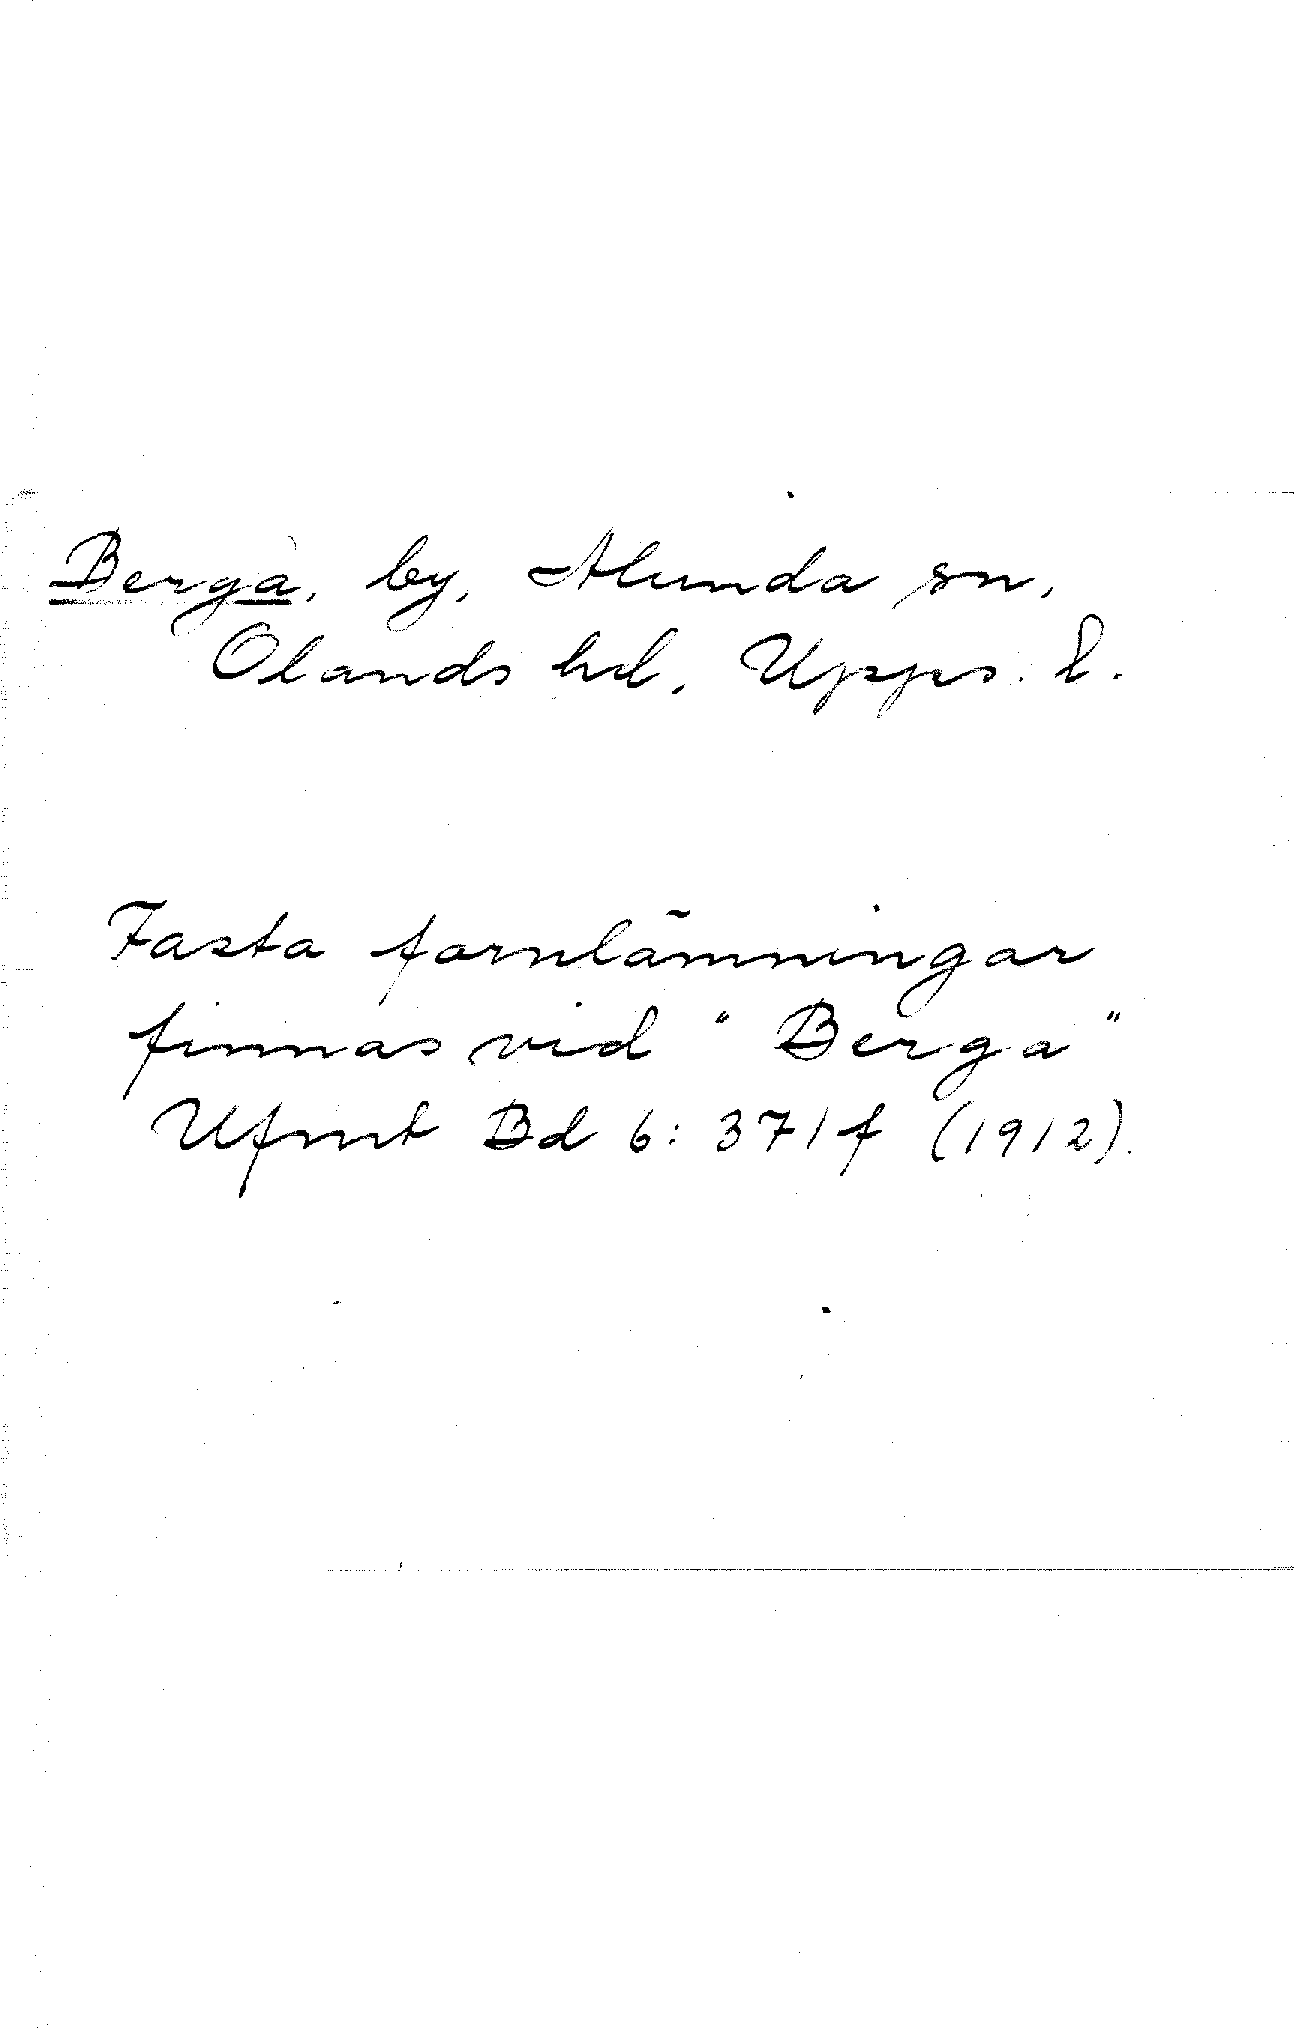 Berga, by, Alunda sn,
Olands hd, Upps. l.
Fasta fornlämningar
finnas vid "Berga"
Ufmt Bd 6: 371 f (1912).